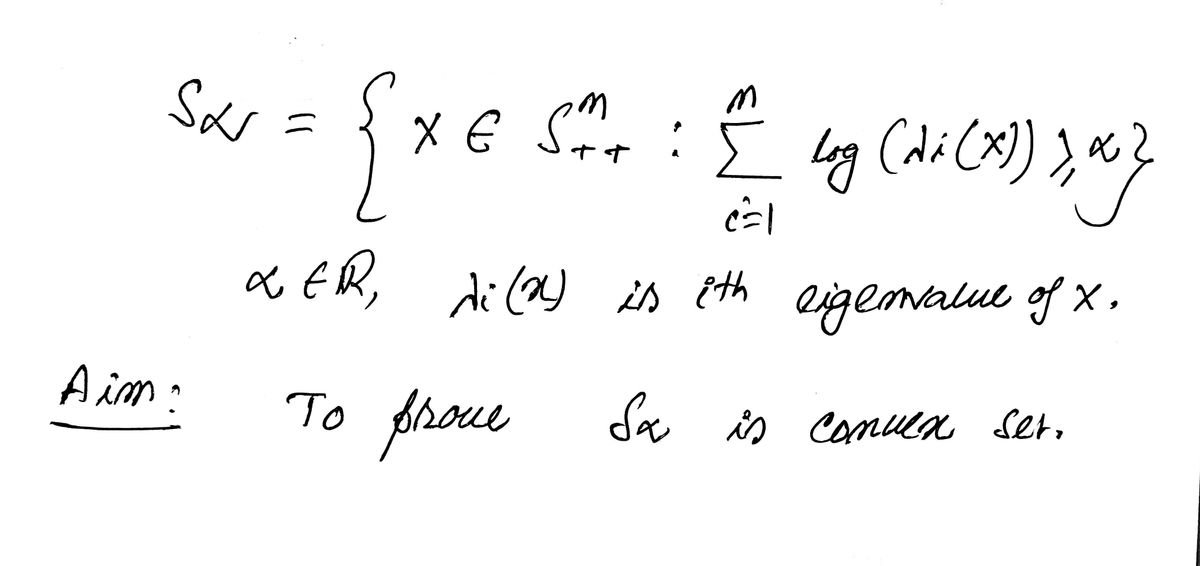 Sα = { X ∈ S^n_{++} : ∑_{i=1}^{n} log (λi(X)) ⩾ α }
α ∈ ℝ, λi(x) is ith eigenvalue of X.
Aim: To prove Sα is convex set.